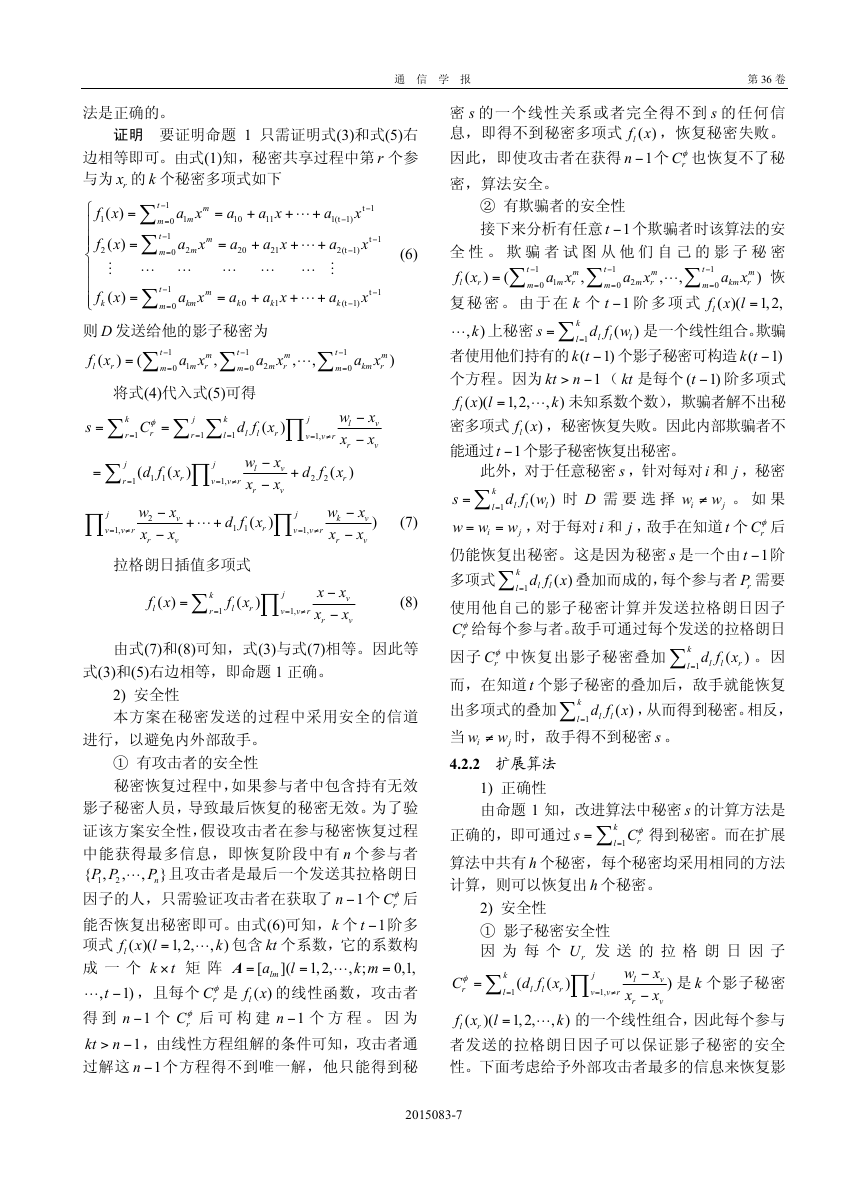 通 信 学 报 第 36 卷
法是正确的。
证明 要证明命题 1 只需证明式(3)和式(5)右
边相等即可。由式(1)知，秘密共享过程中第 r 个参
与为 x_r 的 k 个秘密多项式如下
f_1(x) = ∑_{m=0}^{t−1} a_{1m}x^m = a_{10} + a_{11}x + ⋯ + a_{1(t−1)}x^{t−1}
f_2(x) = ∑_{m=0}^{t−1} a_{2m}x^m = a_{20} + a_{21}x + ⋯ + a_{2(t−1)}x^{t−1} (6)
⋮ ⋯ ⋯ ⋯ ⋯ ⋯ ⋯ ⋮
f_k(x) = ∑_{m=0}^{t−1} a_{km}x^m = a_{k0} + a_{k1}x + ⋯ + a_{k(t−1)}x^{t−1}
则 D 发送给他的影子秘密为
f_l(x_r) = (∑_{m=0}^{t−1} a_{1m}x_r^m, ∑_{m=0}^{t−1} a_{2m}x_r^m, ⋯, ∑_{m=0}^{t−1} a_{km}x_r^m)
将式(4)代入式(5)可得
s = ∑_{r=1}^{k} C_r^ϕ = ∑_{r=1}^{j} ∑_{l=1}^{k} d_l f_l(x_r) ∏_{v=1,v≠r}^{j} (w_l − x_v)/(x_r − x_v)
= ∑_{r=1}^{j} (d_1 f_1(x_r) ∏_{v=1,v≠r}^{j} (w_l − x_v)/(x_r − x_v) + d_2 f_2(x_r)
∏_{v=1,v≠r}^{j} (w_2 − x_v)/(x_r − x_v) + ⋯ + d_1 f_1(x_r) ∏_{v=1,v≠r}^{j} (w_k − x_v)/(x_r − x_v)) (7)
拉格朗日插值多项式
f_l(x) = ∑_{r=1}^{k} f_l(x_r) ∏_{v=1,v≠r}^{j} (x − x_v)/(x_r − x_v) (8)
由式(7)和(8)可知，式(3)与式(7)相等。因此等
式(3)和(5)右边相等，即命题 1 正确。
2) 安全性
本方案在秘密发送的过程中采用安全的信道
进行，以避免内外部敌手。
① 有攻击者的安全性
秘密恢复过程中，如果参与者中包含持有无效
影子秘密人员，导致最后恢复的秘密无效。为了验
证该方案安全性，假设攻击者在参与秘密恢复过程
中能获得最多信息，即恢复阶段中有 n 个参与者
{P_1, P_2, ⋯, P_n} 且攻击者是最后一个发送其拉格朗日
因子的人，只需验证攻击者在获取了 n−1 个 C_r^ϕ 后
能否恢复出秘密即可。由式(6)可知，k 个 t−1 阶多
项式 f_l(x)(l = 1,2,⋯,k) 包含 kt 个系数，它的系数构
成 一 个 k×t 矩 阵 A = [a_{lm}](l = 1,2,⋯,k; m = 0,1,
⋯, t−1)，且每个 C_r^ϕ 是 f_l(x) 的线性函数，攻击者
得 到 n−1 个 C_r^ϕ 后 可 构 建 n−1 个 方 程 。 因 为
kt > n−1，由线性方程组解的条件可知，攻击者通
过解这 n−1 个方程得不到唯一解，他只能得到秘
密 s 的一个线性关系或者完全得不到 s 的任何信
息，即得不到秘密多项式 f_l(x)，恢复秘密失败。
因此，即使攻击者在获得 n−1 个 C_r^ϕ 也恢复不了秘
密，算法安全。
② 有欺骗者的安全性
接下来分析有任意 t−1 个欺骗者时该算法的安
全 性 。 欺 骗 者 试 图 从 他 们 自 己 的 影 子 秘 密
f_l(x_r) = (∑_{m=0}^{t−1} a_{1m}x_r^m, ∑_{m=0}^{t−1} a_{2m}x_r^m, ⋯, ∑_{m=0}^{t−1} a_{km}x_r^m) 恢
复 秘 密 。 由 于 在 k 个 t−1 阶 多 项 式 f_l(x)(l = 1,2,
⋯, k) 上秘密 s = ∑_{l=1}^{k} d_l f_l(w_l) 是一个线性组合。欺骗
者使用他们持有的 k(t−1) 个影子秘密可构造 k(t−1)
个方程。因为 kt > n−1（ kt 是每个 (t−1) 阶多项式
f_l(x)(l = 1,2,⋯,k) 未知系数个数)，欺骗者解不出秘
密多项式 f_l(x)，秘密恢复失败。因此内部欺骗者不
能通过 t−1 个影子秘密恢复出秘密。
此外，对于任意秘密 s，针对每对 i 和 j，秘密
s = ∑_{l=1}^{k} d_l f_l(w_l) 时 D 需 要 选 择 w_i ≠ w_j 。 如 果
w = w_i = w_j，对于每对 i 和 j，敌手在知道 t 个 C_r^ϕ 后
仍能恢复出秘密。这是因为秘密 s 是一个由 t−1 阶
多项式 ∑_{l=1}^{k} d_l f_l(x) 叠加而成的，每个参与者 P_r 需要
使用他自己的影子秘密计算并发送拉格朗日因子
C_r^ϕ 给每个参与者。敌手可通过每个发送的拉格朗日
因子 C_r^ϕ 中恢复出影子秘密叠加 ∑_{l=1}^{k} d_l f_l(x_r) 。因
而，在知道 t 个影子秘密的叠加后，敌手就能恢复
出多项式的叠加 ∑_{l=1}^{k} d_l f_l(x)，从而得到秘密。相反，
当 w_i ≠ w_j 时，敌手得不到秘密 s 。
4.2.2 扩展算法
1) 正确性
由命题 1 知，改进算法中秘密 s 的计算方法是
正确的，即可通过 s = ∑_{l=1}^{k} C_r^ϕ 得到秘密。而在扩展
算法中共有 h 个秘密，每个秘密均采用相同的方法
计算，则可以恢复出 h 个秘密。
2) 安全性
① 影子秘密安全性
因 为 每 个 U_r 发 送 的 拉 格 朗 日 因 子
C_r^ϕ = ∑_{l=1}^{k} (d_l f_l(x_r) ∏_{v=1,v≠r}^{j} (w_l − x_v)/(x_r − x_v)) 是 k 个影子秘密
f_l(x_r)(l = 1,2,⋯,k) 的一个线性组合，因此每个参与
者发送的拉格朗日因子可以保证影子秘密的安全
性。下面考虑给予外部攻击者最多的信息来恢复影
2015083-7